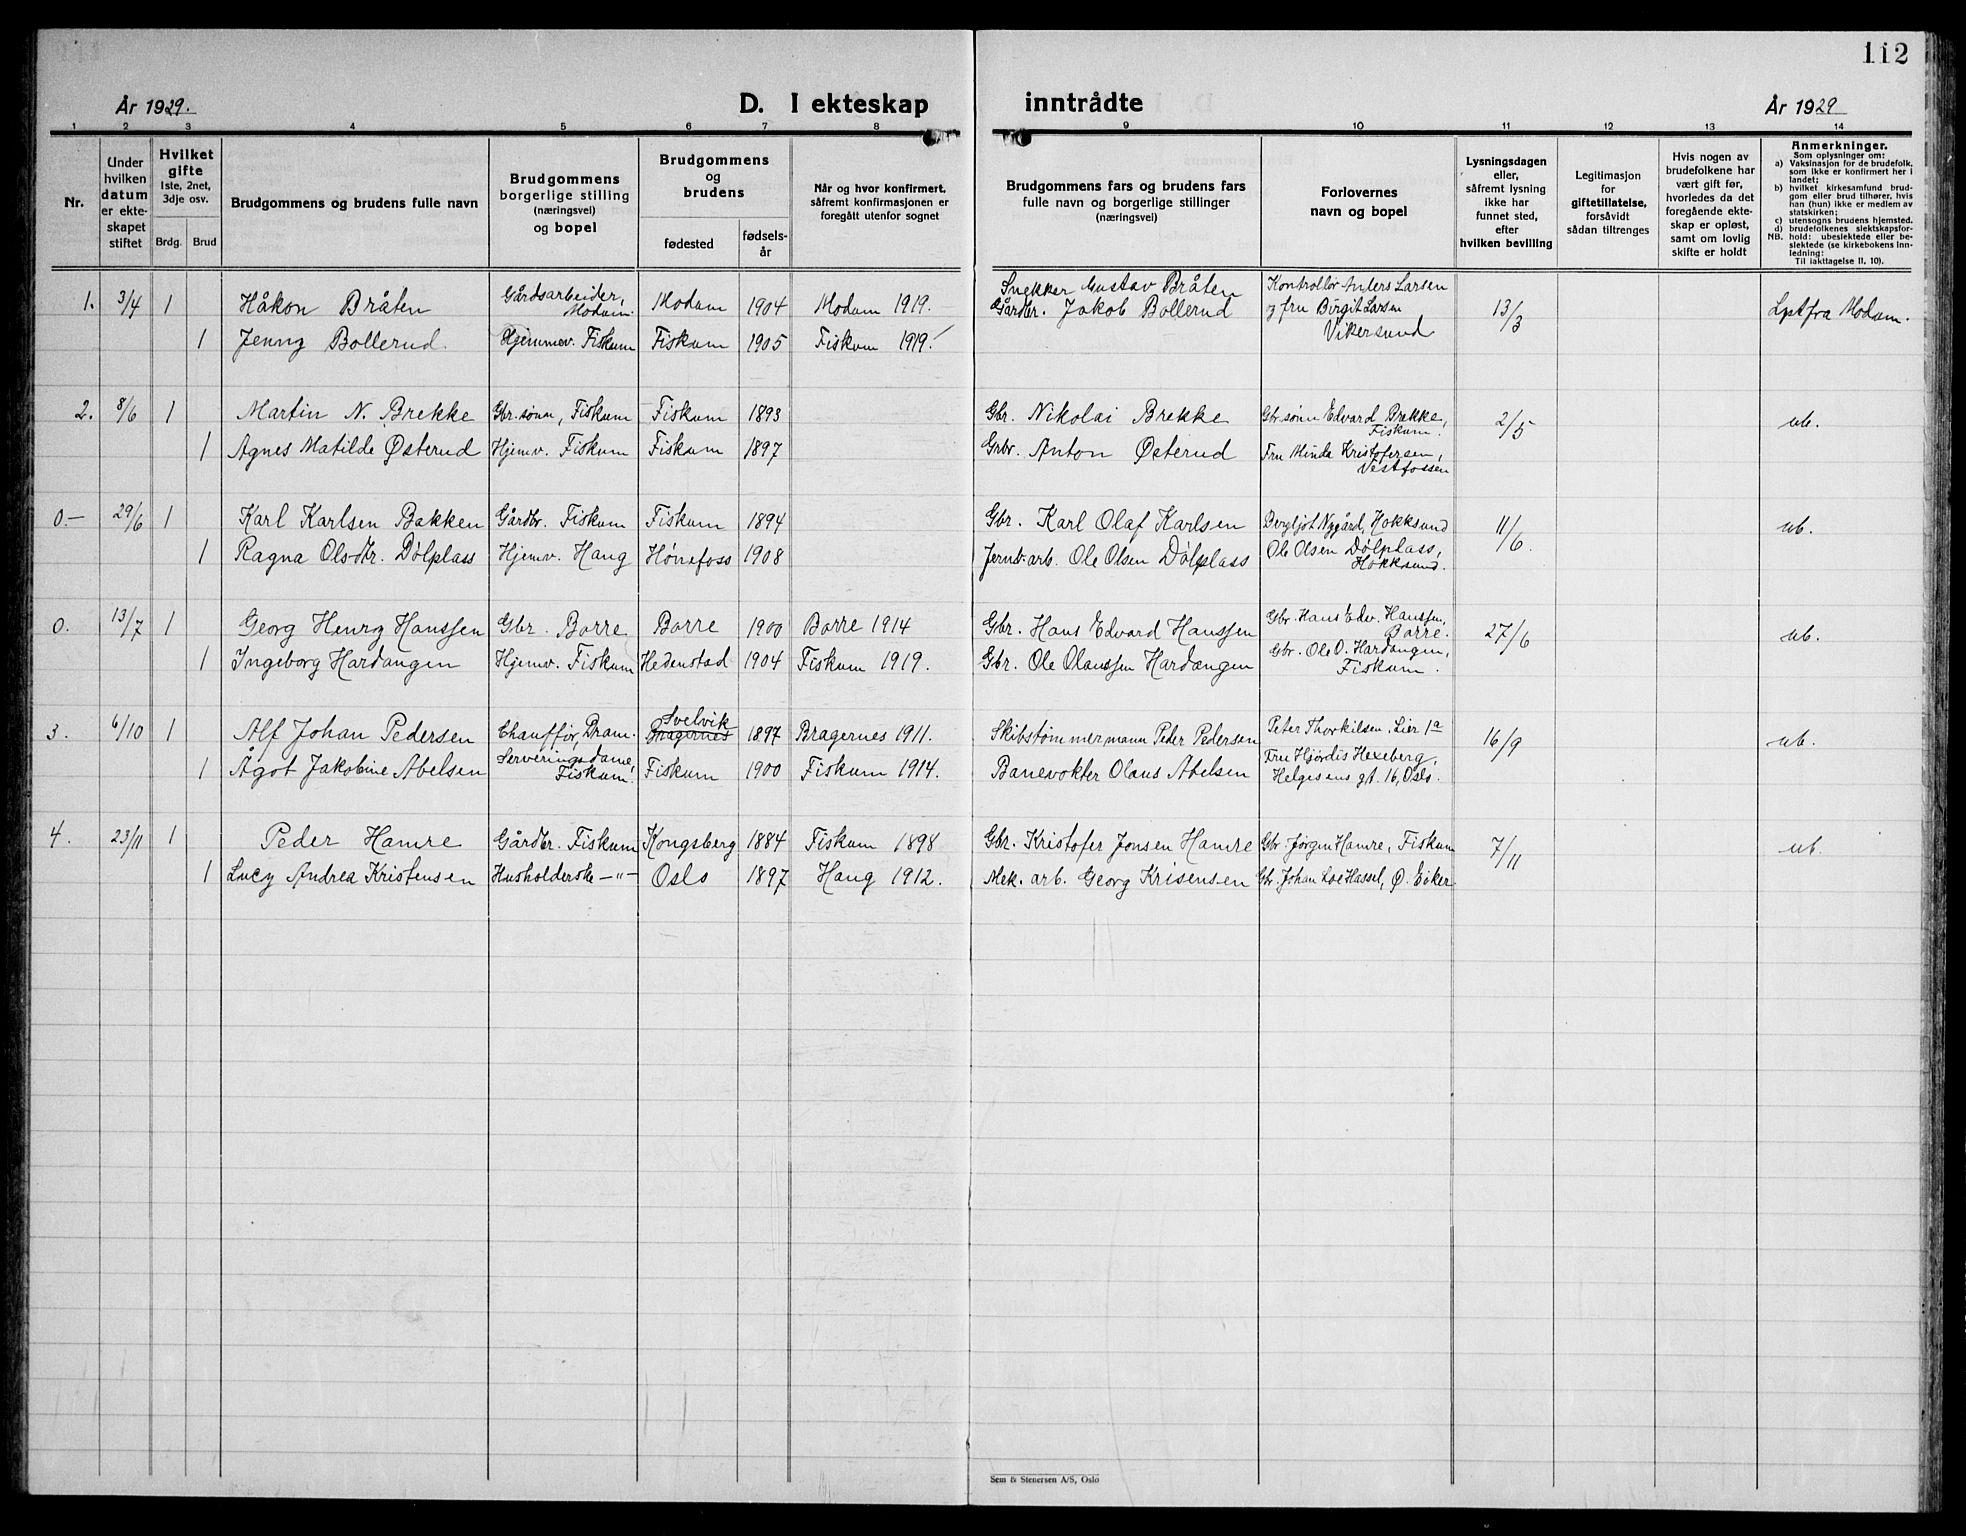 112
År 1929. D. I ekteskap inntrådte År 1929
1 2 3 4 5 6 7 8 9 10 11 12 13 14
Nr.
Under hvilken datum er ekteskapet stiftet
Hvilket gifte 1ste, 2net, 3dje osv.
Brdg. Brud
Brudgommens og brudens fulle navn
Brudgommens borgerlige stilling (næringsvei) og bopel
Brudgommens og brudens
fødested
fødselsår
Når og hvor konfirmert, såfremt konfirmasjonen er foregått utenfor sognet
Brudgommens fars og brudens fars fulle navn og borgerlige stillinger (næringsvei)
Forlovernes navn og bopel
Lysningsdagen eller, såfremt lysning ikke har funnet sted, efter hvilken bevilling
Legitimasjon for giftetillatelse, forsåvidt sådan tiltrenges
Hvis nogen av brudefolkene har vært gift før, hvorledes da det foregående ekteskap er opløst, samt om lovlig skifte er holdt
Anmerkninger.
Som oplysninger om:
a) Vaksinasjon for de brudefolk, som ikke er konfirmert her i landet;
b) hvilket kirkesamfund brudgom eller brud tilhører, hvis han (hun) ikke er medlem av statskirken;
c) utensogns brudens hjemsted.
d) brudefolkenes slektskapsforhold: ubeslektede eller beslektede (se kirkebokens innledning:
NB. Til iakttagelse II, 10).
1. 3/4 1 Håkon Bråten Gårdsarbeider, Modum. Modum 1904 Modum 1919. Snekker Gustav Bråten Kontrollør Anders Larsen 13/3 Lpt fra Modum.
1 Jenny Bollerud. Hjemmev. Fiskum Fiskum 1905 Fiskum 1919. Gårdbr. Jakob Bollerud og fru Birgit Larsen Vikersund
2. 8/6 1 Martin N. Brekke Gbr. sønn, Fiskum Fiskum 1893 Gbr. Nikolai Brekke Gbr sønn Edvard Brekke, Fiskum. 2/5 ub.
1 Agnes Matilde Østerud Hjemv. Fiskum Fiskum 1897 Grbr. Anton Østerud Fru Minda Kristofersen, Vestfossen
0.- 29/6 1 Karl Karlsen Bakken Gårdbr. Fiskum Fiskum 1894 Gbr. Karl Olaf Karlsen Bergljot Nygård, Hokksund 11/6. ub.
1 Ragna Olsdtr. Dølplass Hjemv. Haug Hønefoss 1908 Jernb. arb. Ole Olsen Dølplass Ole Olsen Dølplass, Hokksund.
0. 13/7 1 Georg Henry Hanssen Gbr. Borre Borre 1900 Borre 1914 Gbr. Hans Edvard Hanssen Gbr. Hans Edv. Hanssen, Borre. 27/6 ub.
1 Ingeborg Hardangen Hjemv. Fiskum Hedenstad 1904 Fiskum 1919. Gbr. Ole Olaussen Hardangen Gbr. Ole O. Hardangen, Fiskum.
3. 6/10 1 Alf Johan Pedersen Chauffør, Dram. Svelvik Bragernes 1897 Bragernes 1911. Skibstømmermann Peder Pedersen Peter Thorkilsen, Lier 1a 16/9 ub.
1 Ågot Jakobine Abelsen Serveringsdame, Fiskum. Fiskum 1900 Fiskum 1914. Banevokter Olaus Abelsen Fru Hjørdis Hexeberg, Helgesens gt. 16, Oslo.
4. 23/11 1 Peder Hamre Gårdbr. Fiskum Kongsberg 1884 Fiskum 1898 Gbr. Kristofer Jonsen Hamre Gbr. Jørgen Hamre, Fiskum 7/11 ub.
1 Lucy Andrea Kristensen Husholderske -"- Oslo 1897 Haug 1912. Mek. arb. Georg Krisensen Gbr. Johan Loe Hassel, Ø. Eiker
Sem & Stenersen A/S, Oslo